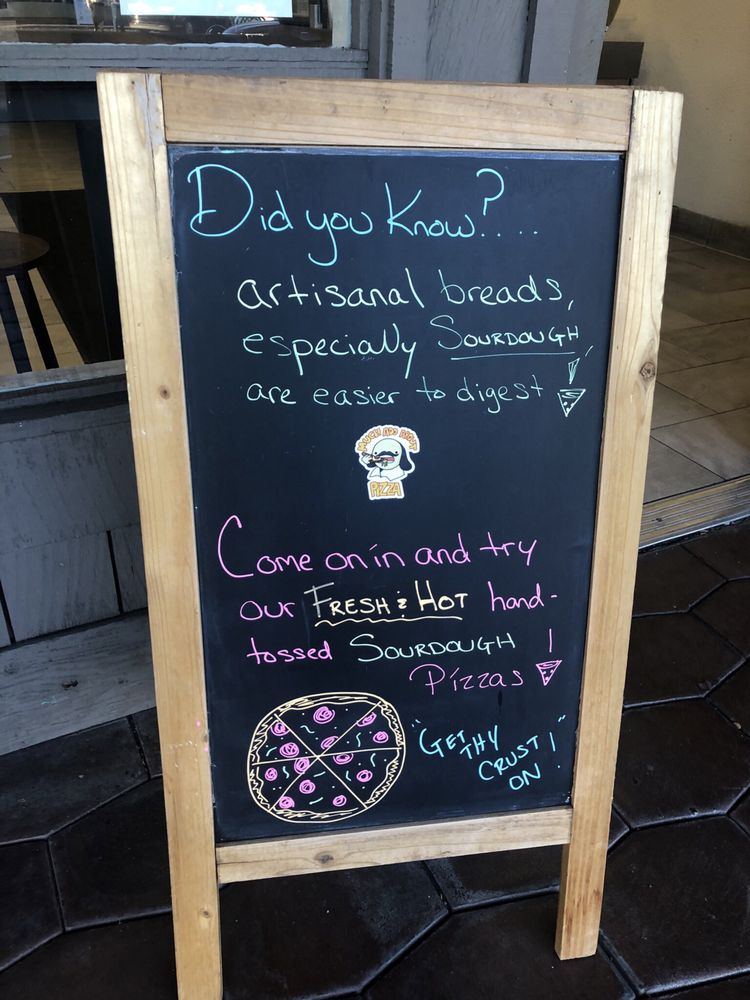 Did you Know?....
artisanal breads,
especially SOURDOUGH
are easier to digest
MUCH ADO ABOUT
PIZZA
Come on in and try
our FRESH & HOT hand-
tossed SOURDOUGH
Pizzas!
"GET THY
CRUST
ON!"